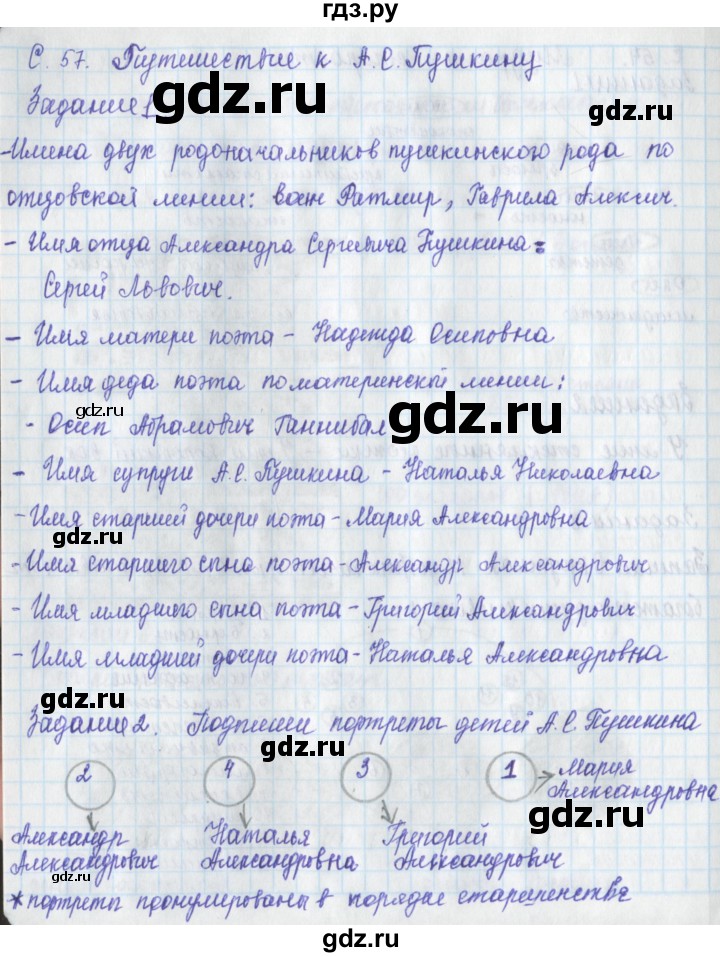 гдз.ру
С. 57. Путешествие к А.С. Пушкину
Задание 1
gdz.ru
-Имена двух родоначальников пушкинского рода по
отцовской линии: воин Ратмир, Гаврила Алексич.
gdz.ru
- Имя отца Александра Сергеевича Пушкина:
Сергей Львович.
gdz.ru
- Имя матери поэта - Надежда Осиповна
- Имя деда поэта по материнской линии:
gdz.ru
- Осип Абрамович Ганнибал
- Имя супруги А.С. Пушкина - Наталья Николаевна
-Имя старшей дочери поэта - Мария Александровна
gdz.ru
-Имя старшего сына поэта -Александр Александрович
- Имя младшего сына поэта - Григорий Александрович
gdz.ru
- Имя младшей дочери поэта -Наталья Александровна
gdz.ru
Задание 2. Подпиши портреты детей А.С. Пушкина
gdz.ru
2 4 3 1 Мария
Александровна
gdz.ru
Александр Наталья Григорий
Александрович Александровна Александрович
gdz.ru
*портреты пронумерованы в порядке старшинства
gdz.ru